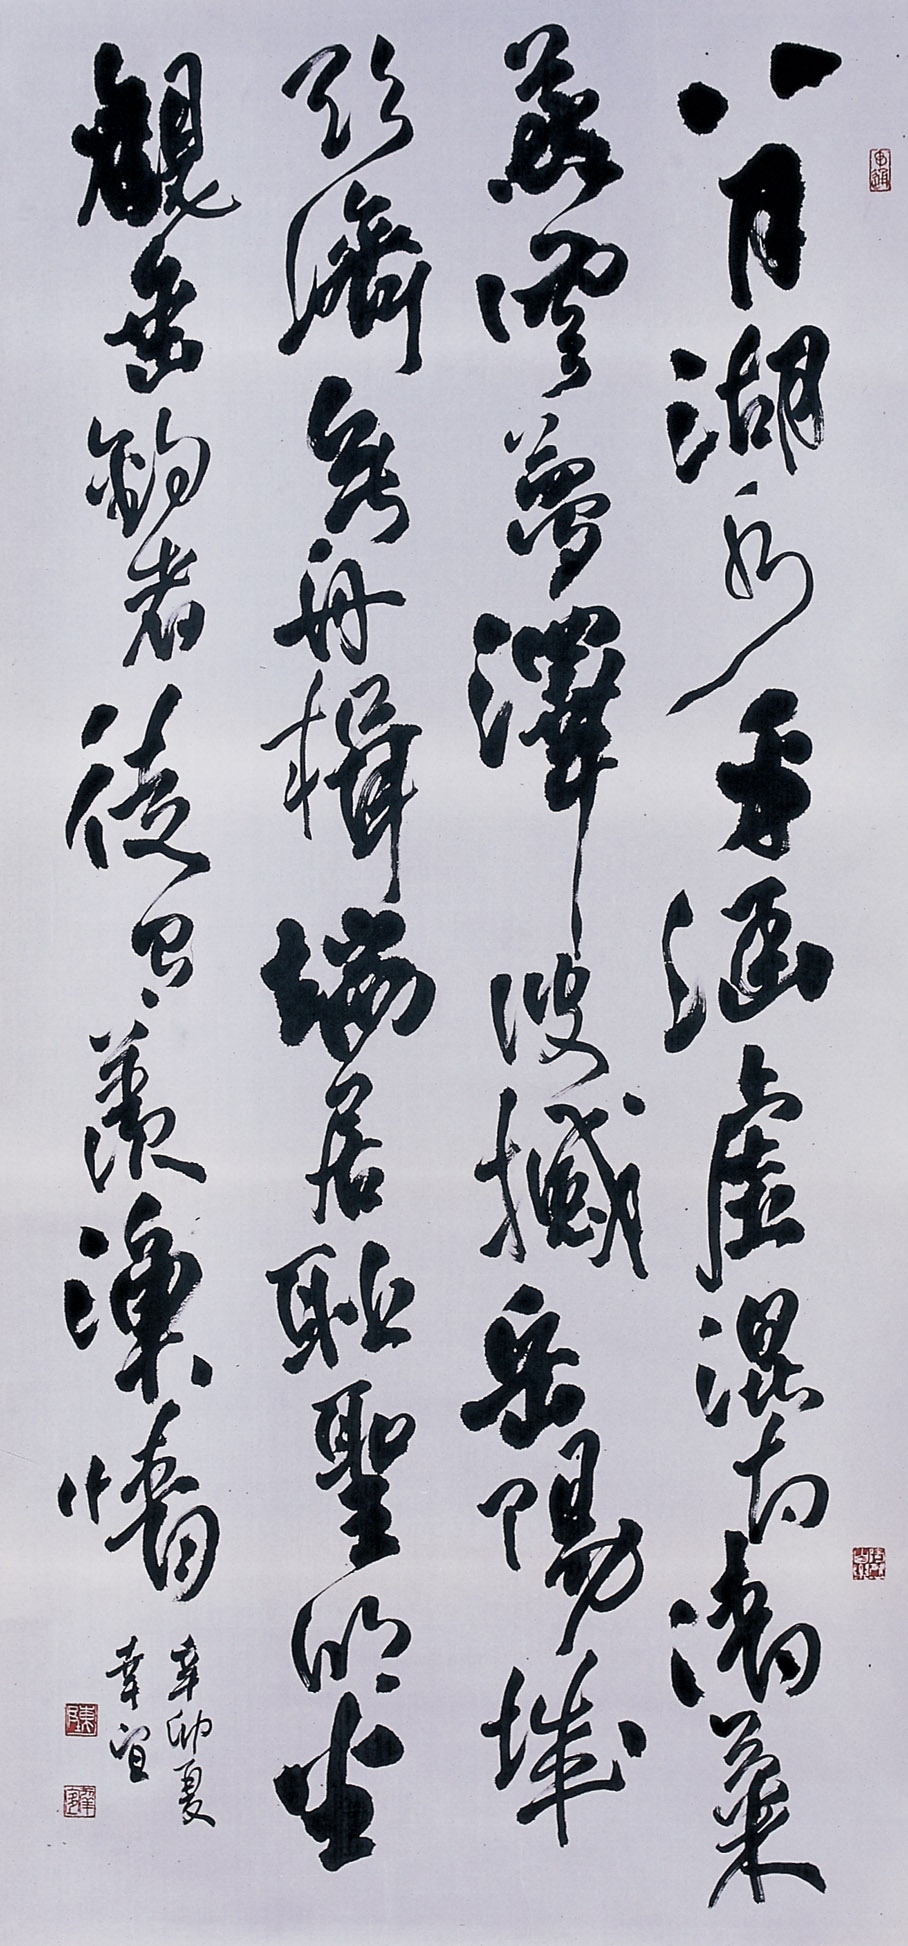 八月湖水平涵虛混太清氣
蒸雲夢澤波撼岳陽城
欲濟無舟楫端居耻聖明坐
觀垂釣者徒有羨漁情
辛卯夏
幸宜